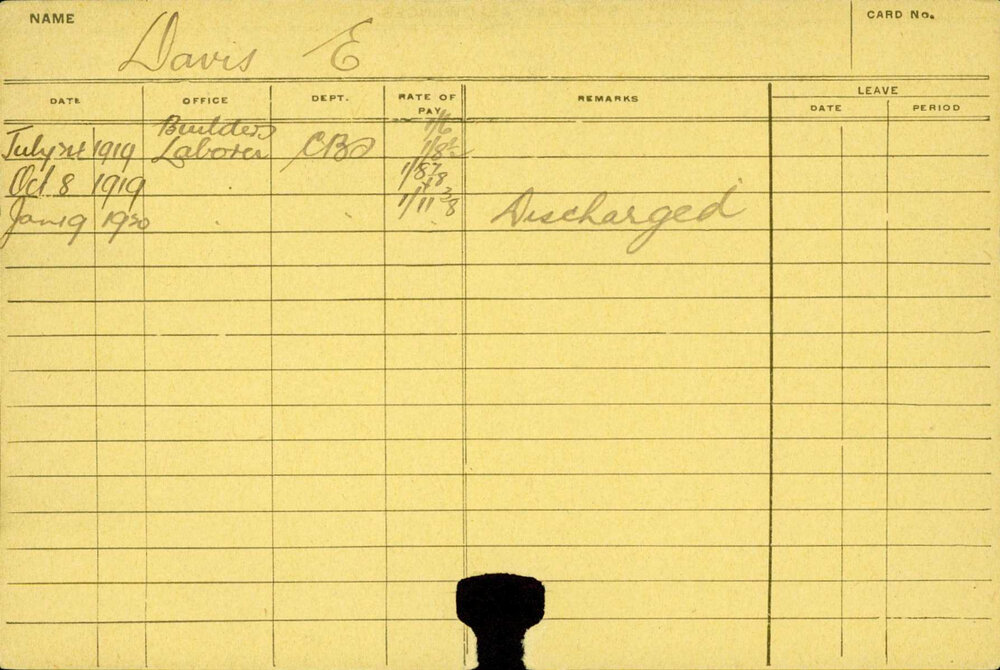 NAME
Davis E
CARD No.
DATE OFFICE DEPT. RATE OF PAY REMARKS LEAVE
DATE PERIOD
1/6
Builders
July 1919 Laborer CBS 1/8½
Oct 8 1919 1/8⅞
Jan 19 1920 1/11⅜ Discharged